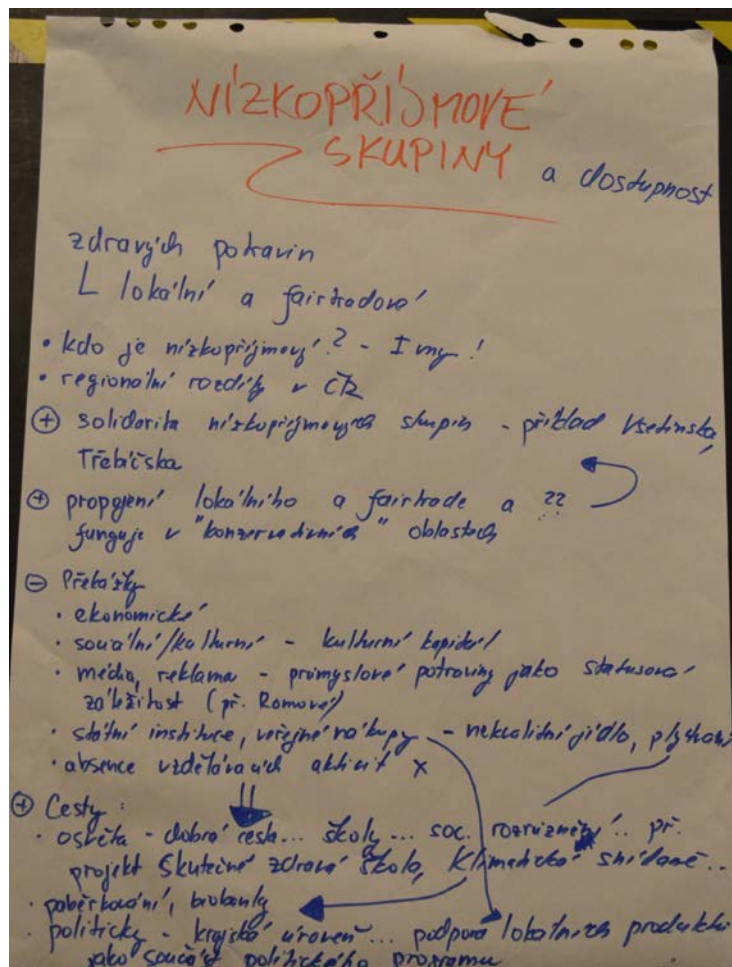 NÍZKOPŘÍJMOVÉ
SKUPINY a dostupnost
zdravých potravin
L lokální a fairtradové
• kdo je nízkopříjmový? - I my!
• regionální rozdíly v ČR
⊕ solidarita nízkopříjmových skupin - příklad Vsetínska,
Třebíčska
⊕ propojení lokálního a fairtrade a ??
funguje v "konzervativních" oblastech
⊖ Překážky
• ekonomické
• sociální/kulturní - kulturní kapitál
• média, reklama - průmyslové potraviny jako statusová
záležitost (př. Romové)
• státní instituce, veřejné nákupy - nekvalitní jídlo, plýtvání
• absence vzdělávacích aktivit x
⊕ Cesty:
• osvěta - dobrá cesta... školy... soc. .. př.
projekt Skutečně zdravá škola, Klimatická snídaně..
• paběrkování, biobanky
• politicky - krajská úroveň... podpora lokálních produktů
jako součást politického programu